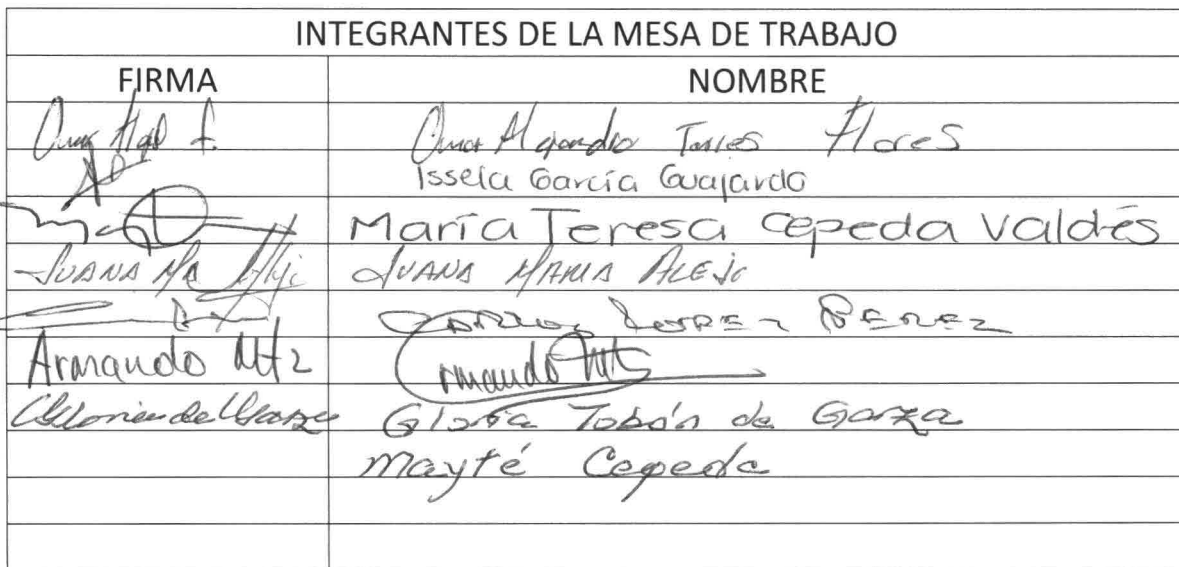 INTEGRANTES DE LA MESA DE TRABAJO
FIRMA NOMBRE
Omar Alejandro Torres Flores
Issela García Guajardo
María Teresa Cepeda Valdés
JUANA MA JUANA MARIA ALEJO
CARLOS LOPEZ PEREZ
Armando Mtz rmando Mtz
Gloria de Garza Gloria Tobón de Garza
Mayté Cepeda